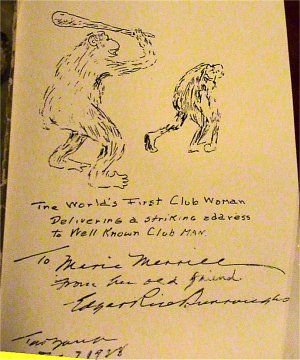 The World's First Club Woman
Delivering a striking address
to Well Known Club Man.
To Marie Merrill
from her old friend
Edgar Rice Burroughs
Tarzana
1928